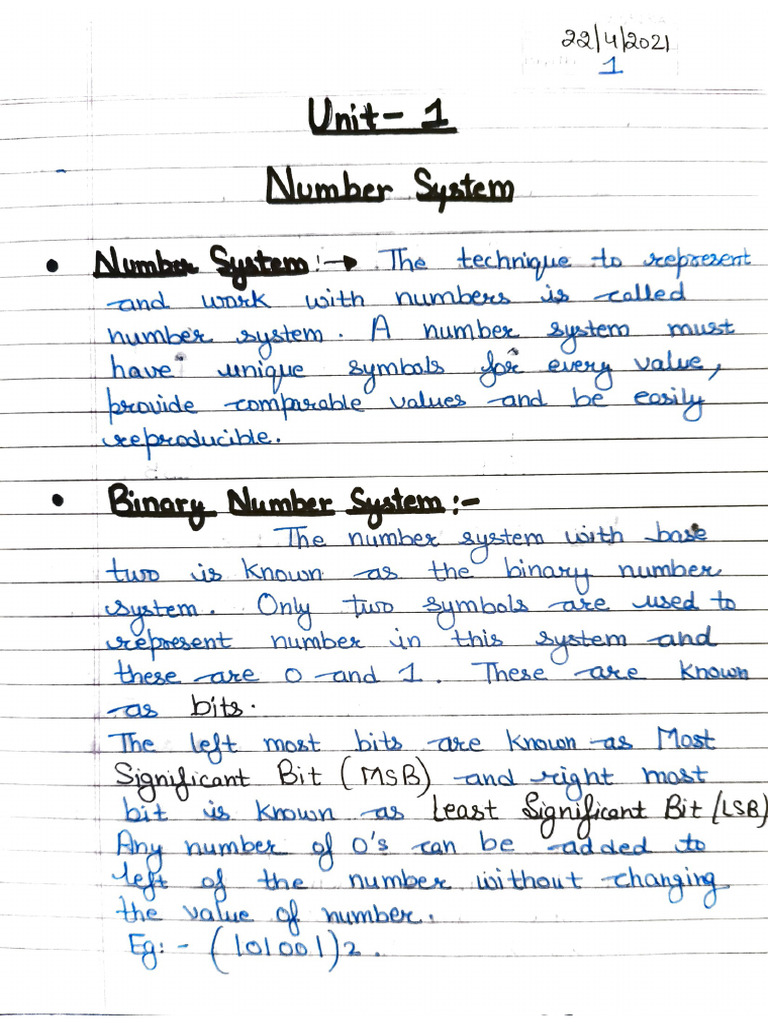 22/4/2021
1
Unit-1
Number System
• Number System:→ The technique to represent
and work with numbers is called
number system. A number system must
have unique symbols for every value,
provide comparable values and be easily
reproducible.
• Binary Number System:-
The number system with base
two is known as the binary number
system. Only two symbols are used to
represent number in this system and
these are 0 and 1. These are known
as bits.
The left most bits are known as Most
Significant Bit (MSB) and right most
bit is known as Least Significant Bit (LSB)
Any number of 0's can be added to
left of the number without changing
the value of number.
Eg:- (101001)2.